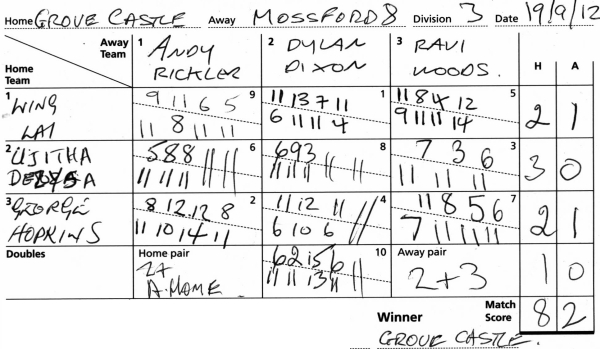 Home GROVE CASTLE Away MOSSFORD 8 Division 3 Date 19/9/12
Away Team 1 ANDY RICKLER 2 DYLAN DIXON 3 RAVI WOODS. H A
Home Team
1 WING LAI
9 11 6 5 9
11 8 11 11
11 13 7 11 1
6 11 11 4
11 8 4 12 5
9 11 11 14
2 1
2 UJITHA
5 8 8 6
11 11 11
6 9 3 8
11 11 11
7 3 6 3
11 11 11
3 0
3 GEORGE HOPKINS
8 12 12 8 2
11 10 14 11
11 12 11 4
6 10 6
11 8 5 6 7
7 11 11 11
2 1
Doubles Home pair 10 Away pair
2+
A.HOME
6 2 15 6
11 11 13 11
2+3
1 0
Winner Match Score 8 2
GROVE CASTLE.